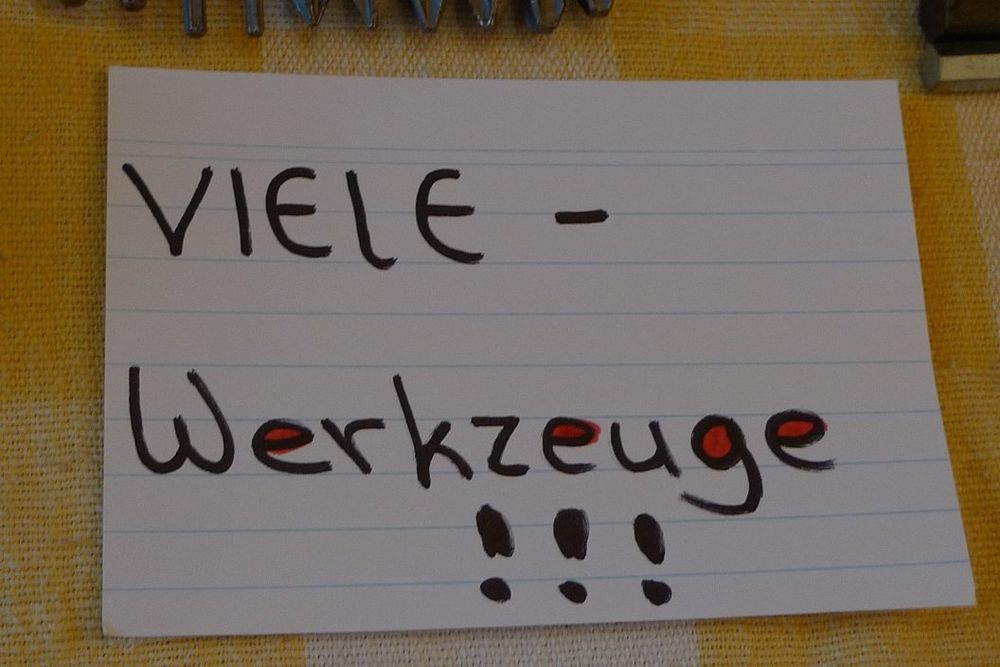 VIELE -
Werkzeuge
!!!